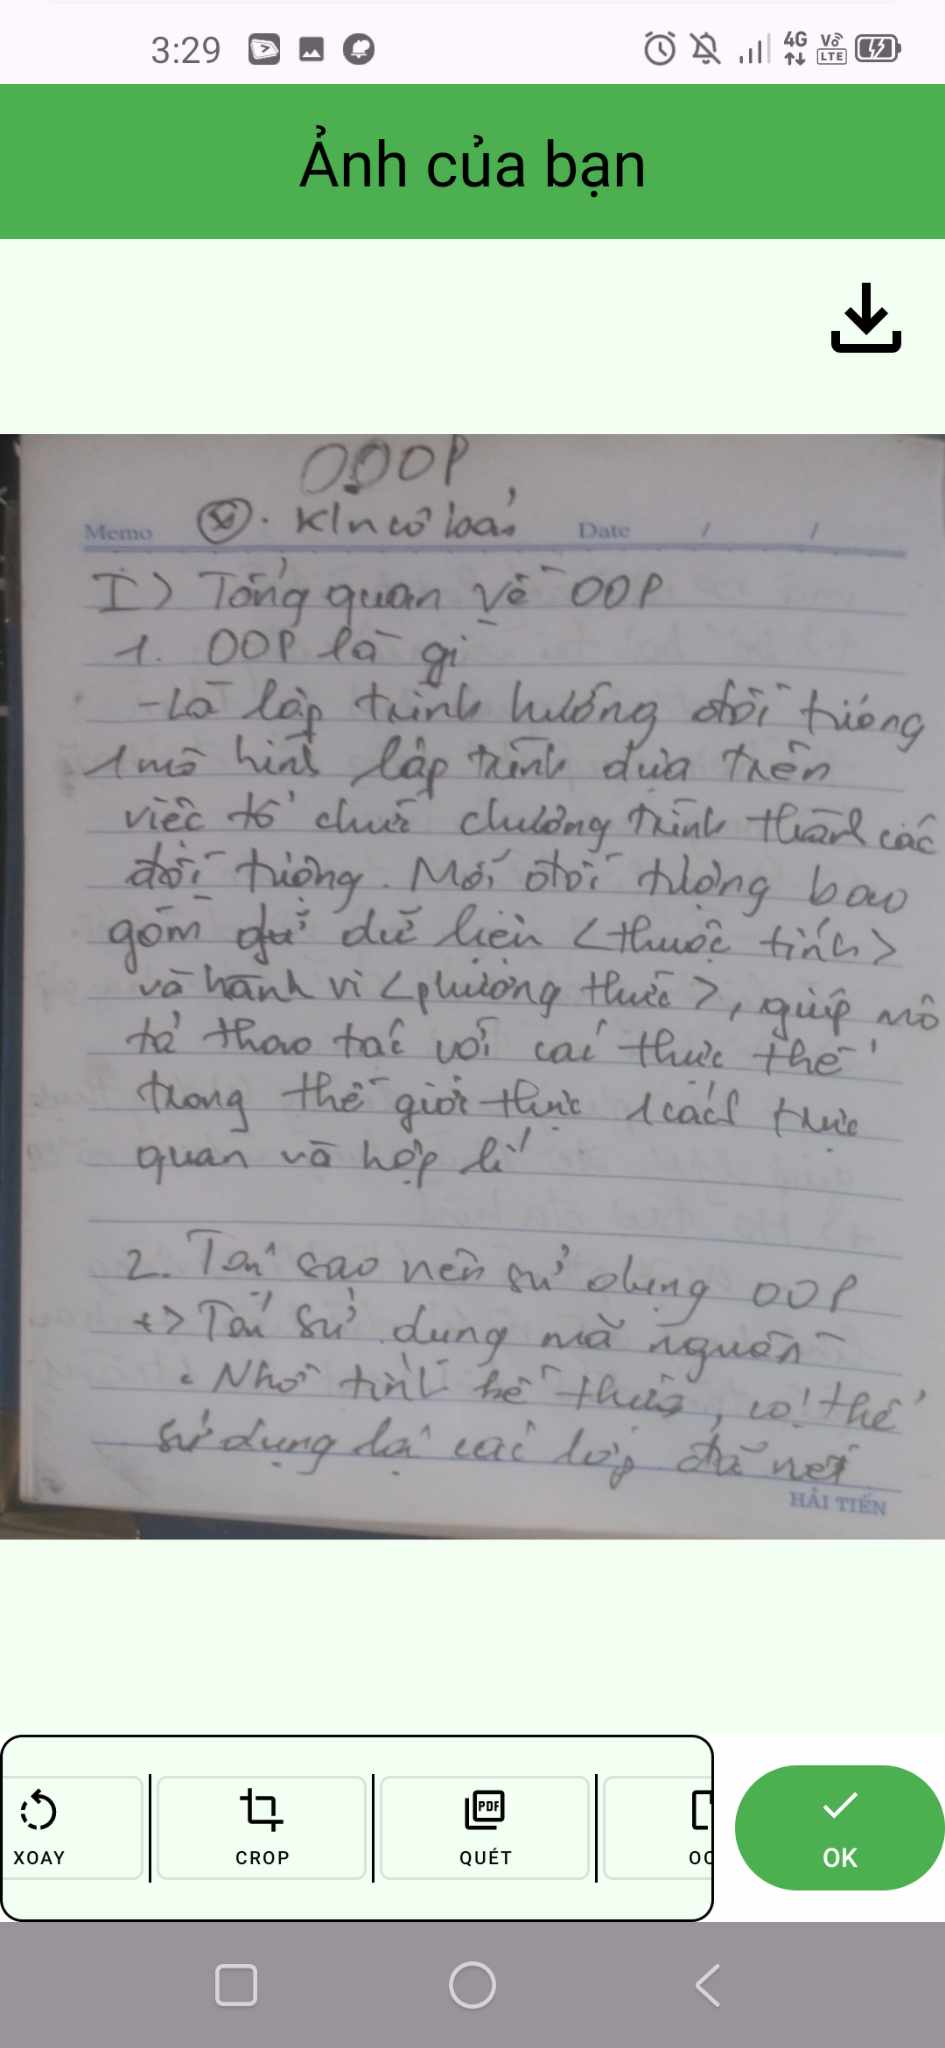 3:29 4G Vo LTE
Ảnh của bạn
OOOP
Memo Date / /
I) Tổng quan về OOP
1. OOP là gì
- Là lập trình hướng đối tượng
1 mô hình lập trình dựa trên
việc tổ chức chương trình thành các
đối tượng. Mỗi đối tượng bao
gồm dữ liệu <thuộc tính>
và hành vi <phương thức>, giúp mô
tả thao tác với các thực thể
trong thế giới thực 1 cách trực
quan và hợp lí
2. Tại sao nên sử dụng OOP
+> Tái sử dụng mã nguồn
. Nhờ tính kế thừa, có thể
sử dụng lại các lớp đã
HẢI TIẾN
XOAY
CROP
PDF
QUÉT
OK